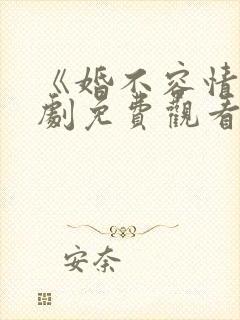 《婚不容情
劇免費觀看
安奈